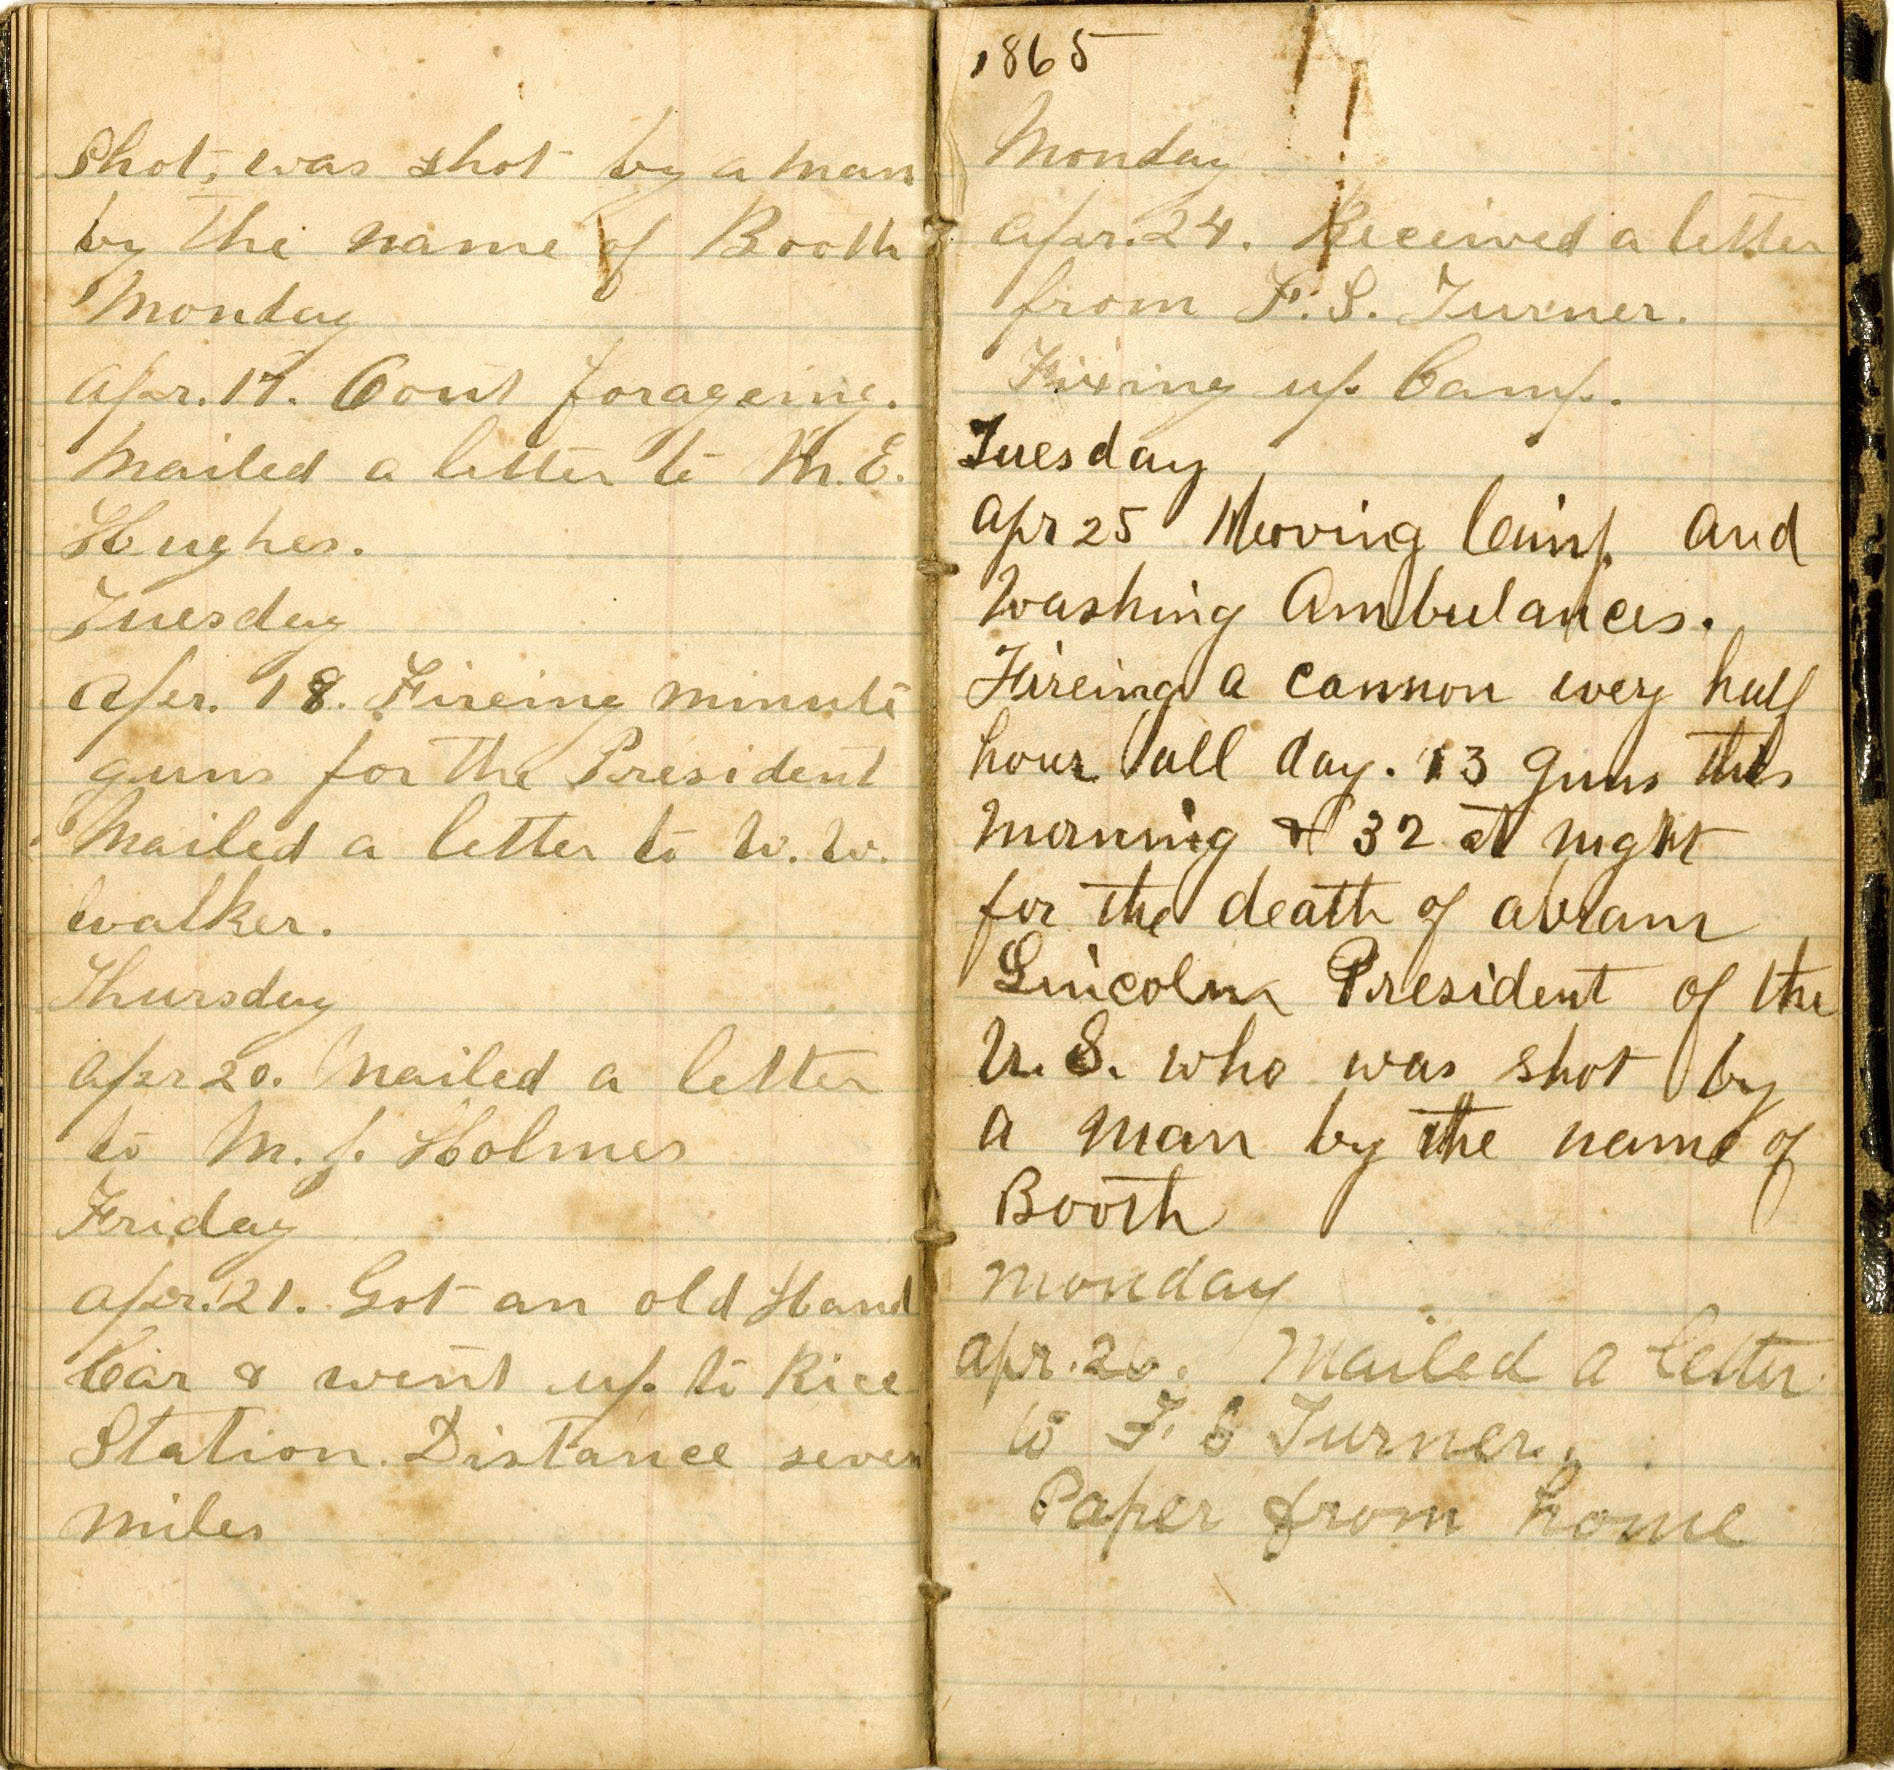 Shot, was shot by a man
by the name of Booth
Monday
Apr. 17. Cont forageing.
Mailed a letter to M. E.
Hughes.
Tuesday
Apr. 18. Fireing minute
guns for the President
Mailed a letter to W. W.
Walker.
Thursday
Apr 20. Mailed a letter
to M. J. Holmes
Friday
Apr. 21. Got an old Hand
Car & went up to Rice
Station. Distance seven
miles
1865
Monday
Apr. 24. Received a letter
from F. S. Turner.
Fixing up Camp.
Tuesday
Apr 25 Moving Camp and
Washing Ambulances.
Fireing a cannon every half
hour all day. 13 guns this
morning & 32 at night
for the death of abram
Lincoln President of the
U. S. who was shot by
a man by the name of
Booth
Monday
Apr. 26. Mailed a letter
to F. S Turner.
Paper from home